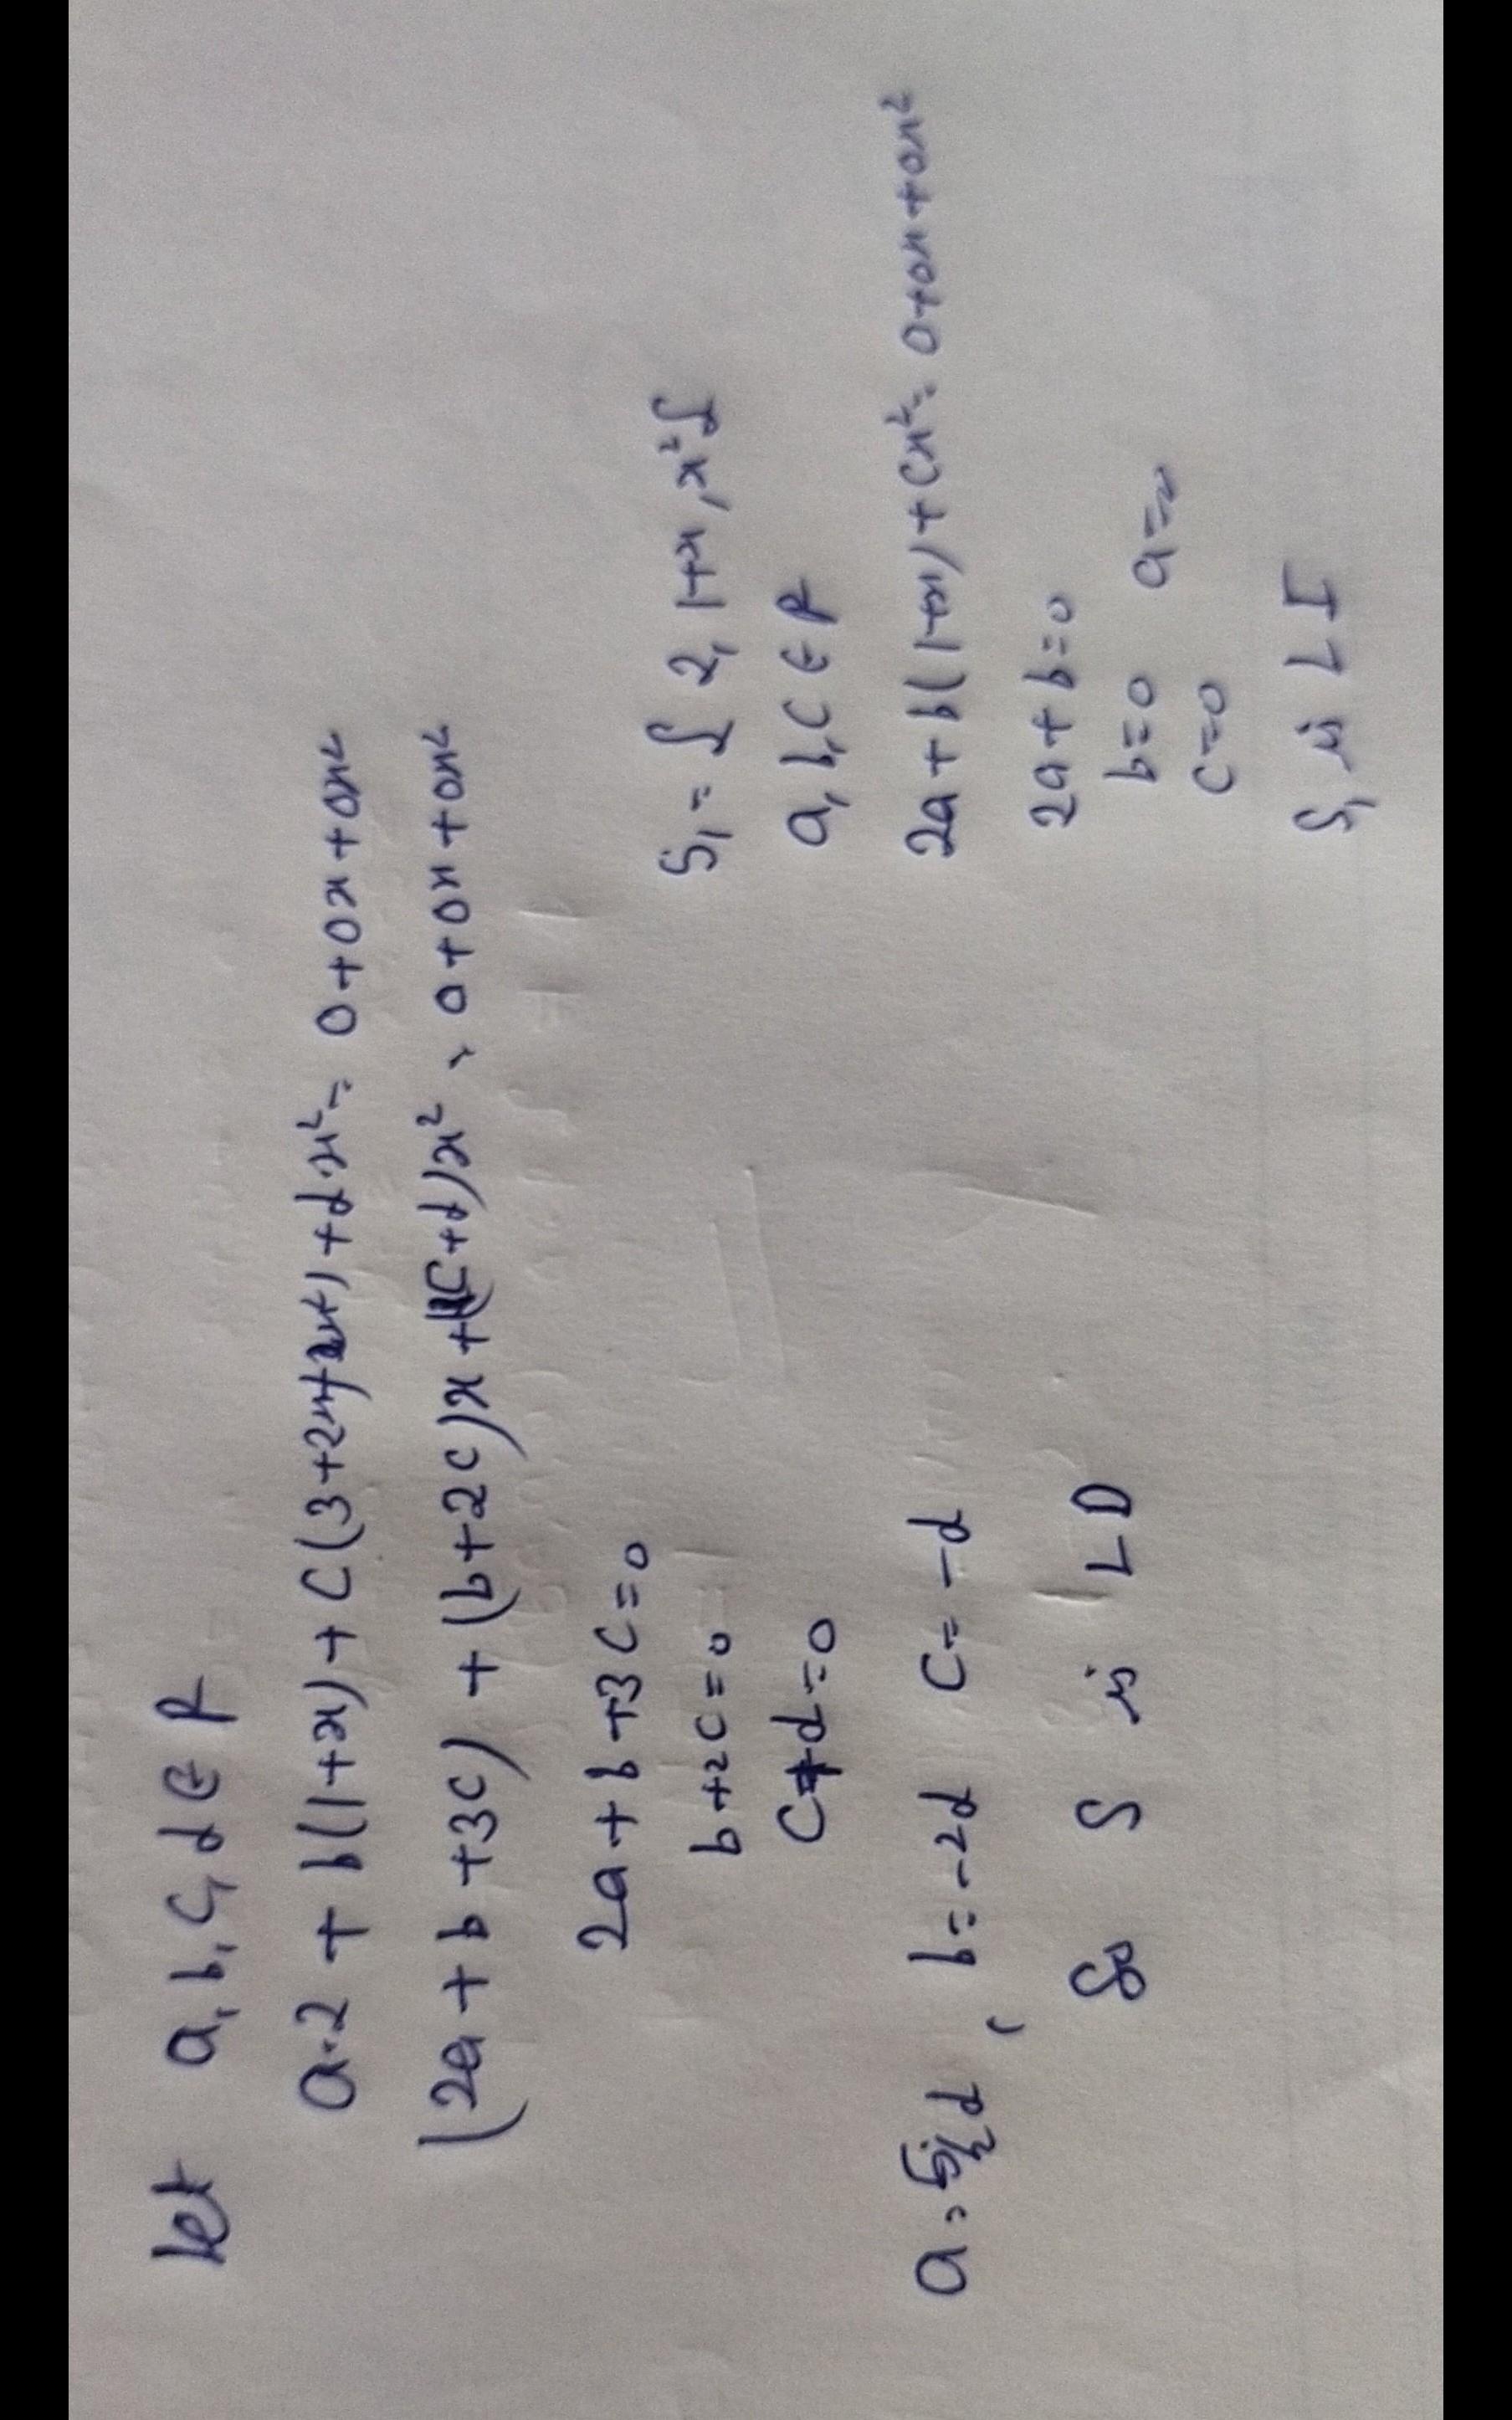 let a, b, c, d ∈ R
a·2 + b(1+x) + c(3+2x+x²) + dx² = 0+0x+0x²
(2a+b+3c) + (b+2c)x + (c+d)x² = 0+0x+0x²
2a+b+3c=0
b+2c=0
c+d=0
a = 5/2 d, b=-2d c=-d
S is LD
S₁ = { 2, 1+x, x² }
a, b, c ∈ R
2a+b(1+x)+cx² = 0+0x+0x²
2a+b=0
b=0 a=
c=0
S₁ is LI